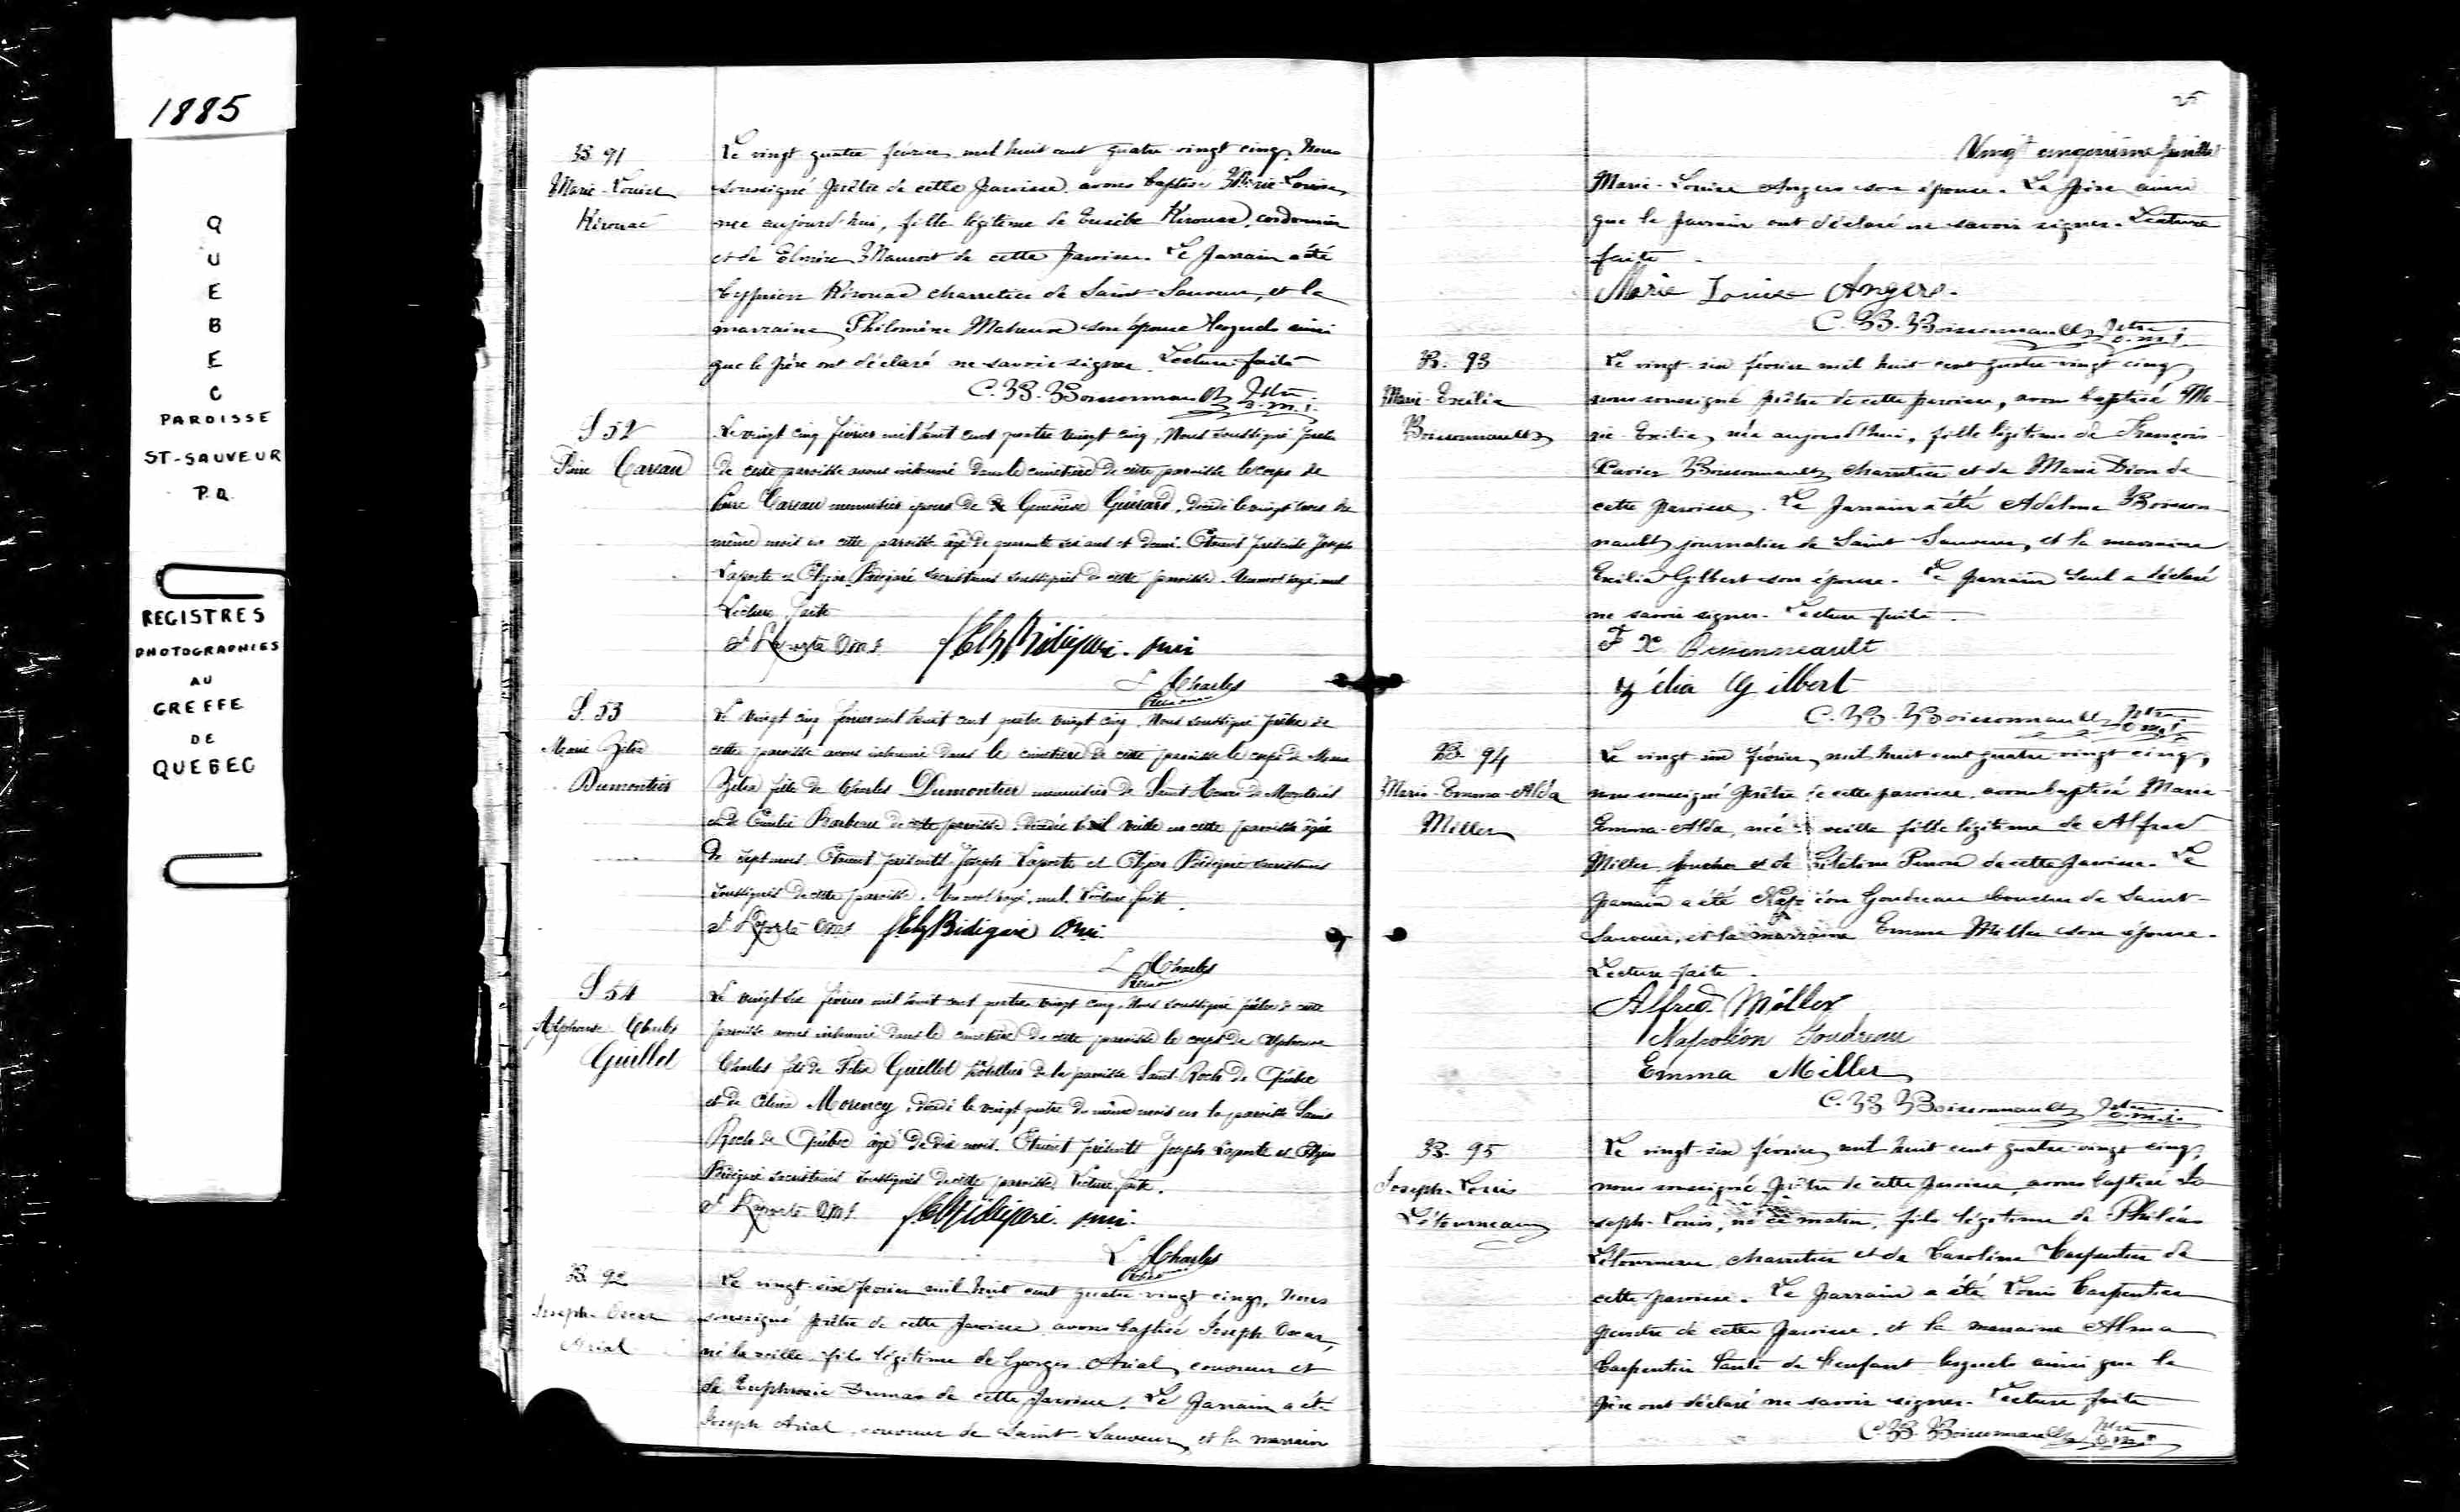 1885
QUEBEC
PAROISSE
ST-SAUVEUR
P.Q.
REGISTRES
PHOTOGRAPHIES
AU
GREFFE
DE
QUEBEC
B. 91
Marie-Louise
Kirouac
Le vingt quatre février mil huit cent quatre-vingt cinq, Nous
soussigné prêtre de cette paroisse avons baptisé Marie-Louise,
née aujourd'hui, fille légitime de Eusèbe Kirouac, cordonnier
et de Elmire de cette paroisse. Le Parrain a été
Cyprien Kirouac charretier de Saint-Sauveur, et la
marraine Philomène son épouse lesquels ainsi
que le père ont déclaré ne savoir signer. Lecture faite
C. B. Boissonnault Ptre
o.m.i.
S 52
Pierre Careau
Le vingt cinq février mil huit cent quatre vingt cinq, Nous soussigné prêtre
de cette paroisse avons inhumé dans le cimetière de cette paroisse le corps de
Pierre Careau menuisier époux de Geneviève Guérard, décédé le vingt trois du
même mois en cette paroisse âgé de quarante six ans et demi. Etaient présents Joseph
Laporte et Elzéar Bédigaré sacristains soussignés de cette paroisse. Un mot rayé nul
Lecture faite
J Laporte O.M.I. f Elz Bédigaré. omi
L Charles
S. 53
Marie Zélia
Dumontier
Le vingt cinq février mil huit cent quatre vingt cinq, Nous soussigné prêtre de
cette paroisse avons inhumé dans le cimetière de cette paroisse le corps de Marie
Zélia fille de Charles Dumontier menuisier de Saint Henri de Montréal
et de Emélie Barbeau de cette paroisse, décédée la veille en cette paroisse âgée
de sept mois. Etaient présents Joseph Laporte et Elzéar Bédigaré sacristains
soussignés de cette paroisse. Un mot rayé, nul. Lecture faite.
J Laporte OMI f Elz Bédigaré Omi.
L Charles
S 54
Alphonse Charles
Guillot
Le vingt six février mil huit cent quatre vingt cinq, Nous soussigné prêtre de cette
paroisse avons inhumé dans le cimetière de cette paroisse le corps de Alphonse
Charles fils de Félix Guillot hôtellier de la paroisse Saint Roch de Québec
et de Célina Morency, décédé le vingt quatre du même mois en la paroisse Saint
Roch de Québec âgé de dix mois. Etaient présents Joseph Laporte et Elzéar
Bédigaré sacristains soussignés de cette paroisse. Lecture faite.
J Laporte O.M.I. f Elz Bédigaré. omi.
L Charles
B. 92
Joseph-Oscar
Arial
Le vingt-six février mil huit cent quatre vingt cinq, Nous
soussigné prêtre de cette paroisse avons baptisé Joseph Oscar,
né la veille fils légitime de Georges Arial, couvreur et
de Euphrosie Dumas de cette paroisse. Le Parrain a été
Joseph Arial, couvreur de Saint-Sauveur, et la marraine
25
Vingt cinquième feuillet
Marie-Louise Angers son épouse. Le père ainsi
que le parrain ont déclaré ne savoir signer. Lecture
faite.
Marie Louise Angers.
C. B. Boissonnault Ptre
o.m.i.
B. 93
Marie-Exilia
Boissonnault
Le vingt-six février mil huit cent quatre-vingt cinq
nous soussigné prêtre de cette paroisse, avons baptisé Ma-
rie-Exilia, née aujourd'hui, fille légitime de François-
Xavier Boissonnault, charretier et de Marie Dion de
cette paroisse. Le Parrain a été Adelme Boisson-
nault journalier de Saint Sauveur, et la marraine
Exilia Gilbert son épouse. Le parrain seul a déclaré
ne savoir signer. Lecture faite.
F X Boissonneault
Zélia Gilbert
C. B. Boissonnault Ptre
o.m.i.
B. 94
Marie-Emma-Alda
Miller
Le vingt-six février, mil huit cent quatre-vingt cinq,
nous soussigné prêtre de cette paroisse, avons baptisé Marie-
Emma-Alda, née la veille fille légitime de Alfred
Miller boucher et de de cette paroisse. Le
parrain a été Napoléon Goudreau boucher de Saint-
Sauveur, et la marraine Emma Miller son épouse.
Lecture faite.
Alfred Miller
Napoléon Goudreau
Emma Miller
C. B. Boissonnault Ptre
o.m.i.
B. 95
Joseph-Louis
Létourneau
Le vingt-six février mil huit cent quatre-vingt cinq,
nous soussigné Prêtre de cette paroisse, avons baptisé Jo-
seph-Louis, né ce matin, fils légitime de Philéas
Létourneau, charretier et de Caroline Carpentier de
cette paroisse. Le parrain a été Louis Carpentier
peintre de cette paroisse, et la marraine Alma
Carpentier tante de l'enfant lesquels ainsi que le
père ont déclaré ne savoir signer. Lecture faite
C. B. Boissonnault Ptre
o.m.i.